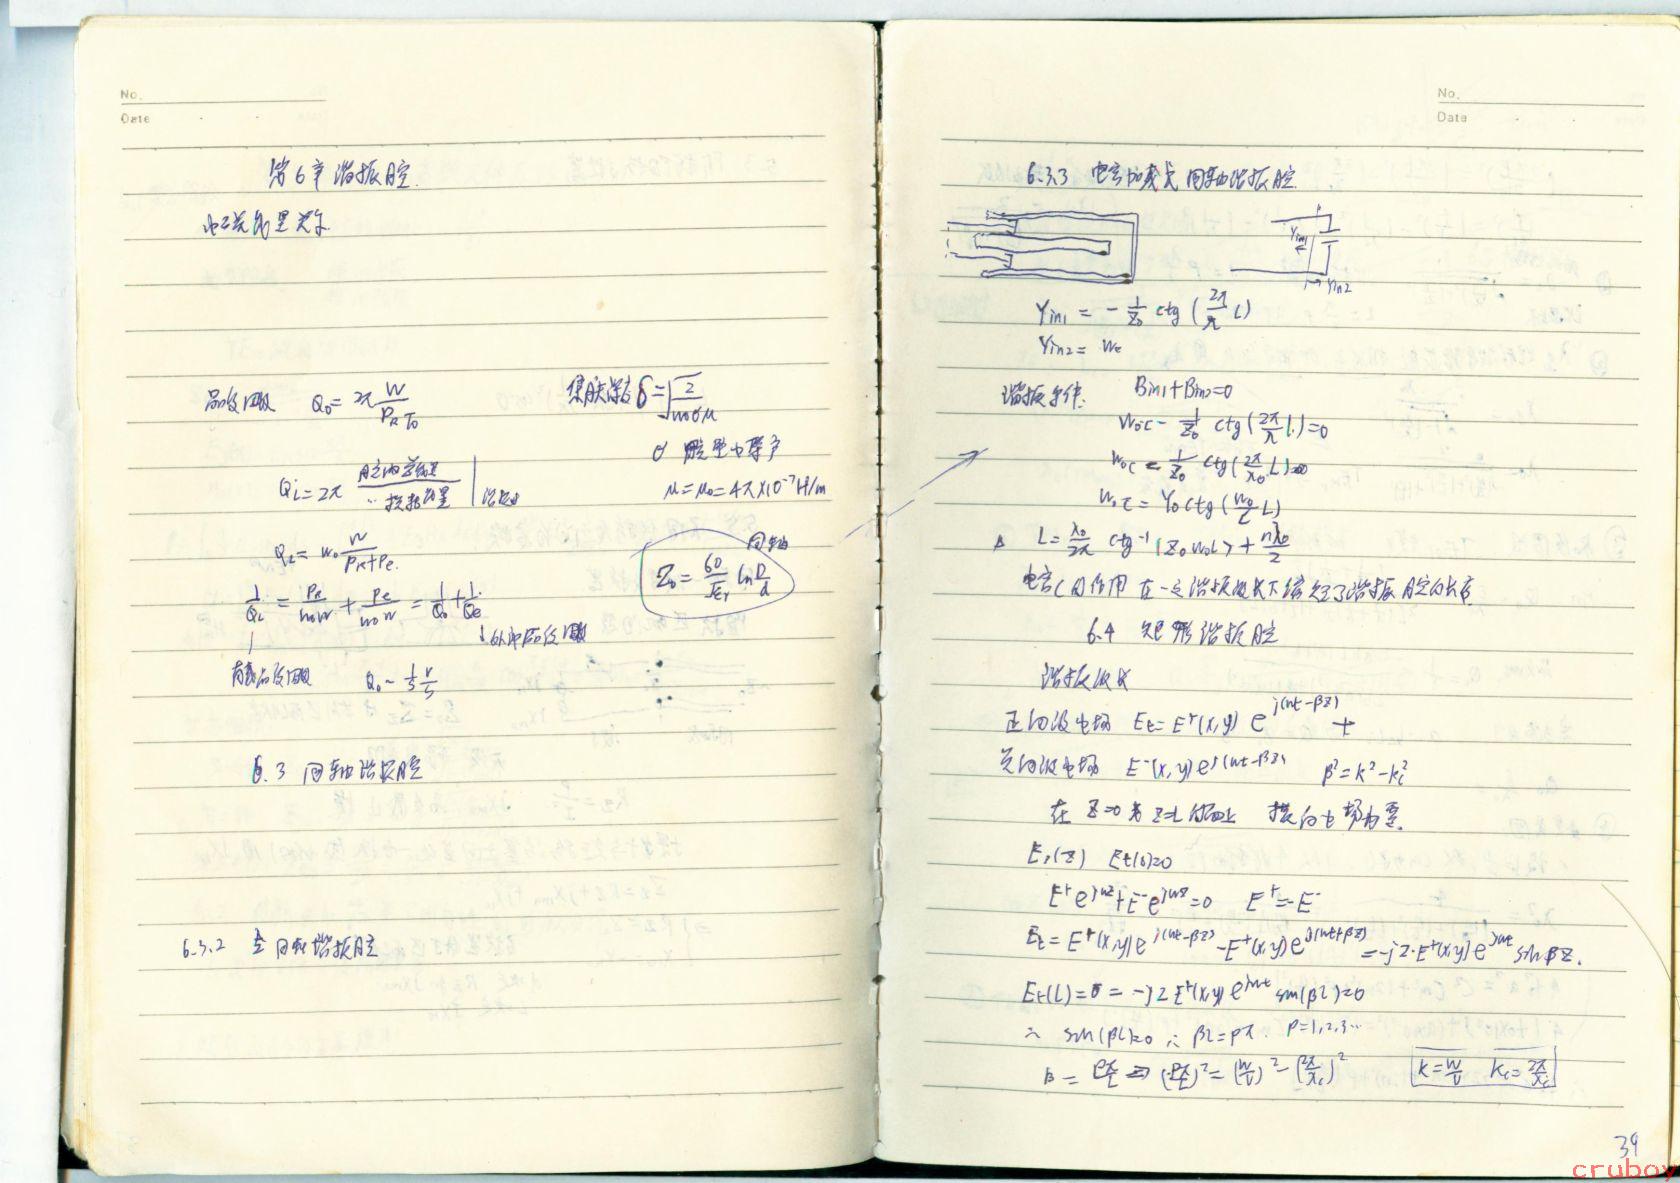 No.
Date
第6章 谐振腔
品质因数 Q₀ = 2π W/(P_R T₀)
集肤深度 δ = √(2/(ω₀σμ))
σ 腔壁电导率
μ = μ₀ = 4π×10⁻⁷ H/m
Q_L = ω₀ W/(P_R+P_e)
同轴
Z₀ = 60/√εr ln D/d
1/Q_L = P_R/(ω₀W) + P_e/(ω₀W) = 1/Q₀ + 1/Q_e
外部品质因数
有载品质因数 Q₀ ~ 1/δ V/S
6.3 同轴谐振腔
6.3.2 同轴谐振腔
No.
Date
6.3.3 电容加载式同轴谐振腔
Yin1
Yin2
Yin1 = - 1/Z₀ ctg(2π/λ L)
Yin2 = ωc
谐振条件 Bin1+Bin2=0
ω₀c - 1/Z₀ ctg(2π/λ L)=0
ω₀c = 1/Z₀ ctg(2π/λ₀ L)
ω₀c = Y₀ctg(ω₀/c L)
L = λ₀/2π ctg⁻¹(Z₀ω₀c) + nλ₀/2
电容的作用 在一定谐振波长下缩短了谐振腔的长度
6.4 矩形谐振腔
谐振波长
正向波电场 Et = E⁺(x,y) e^j(ωt-βz) +
反向波电场 E⁻(x,y) e^j(ωt-βz) β² = k²-kc²
在 z=0 和 z=L 的面上 横向电场为零.
Et(z) Et(0)=0
E⁺e^jωz + E⁻e^jωz = 0 E⁺=-E⁻
Et = E⁺(x,y)e^j(ωt-βz) - E⁺(x,y)e^j(ωt+βz) = -j2·E⁺(x,y)e^jωt sinβz.
Et(L)=0 = -j2E⁺(x,y)e^jωt sin(βL)=0
∴ sin(βL)=0 ∴ βL=pπ. p=1,2,3…
β = pπ/L ⇒ (pπ/L)² = (ω/v)² - (2π/λc)² k=ω/v kc=2π/λc
39
cruboy